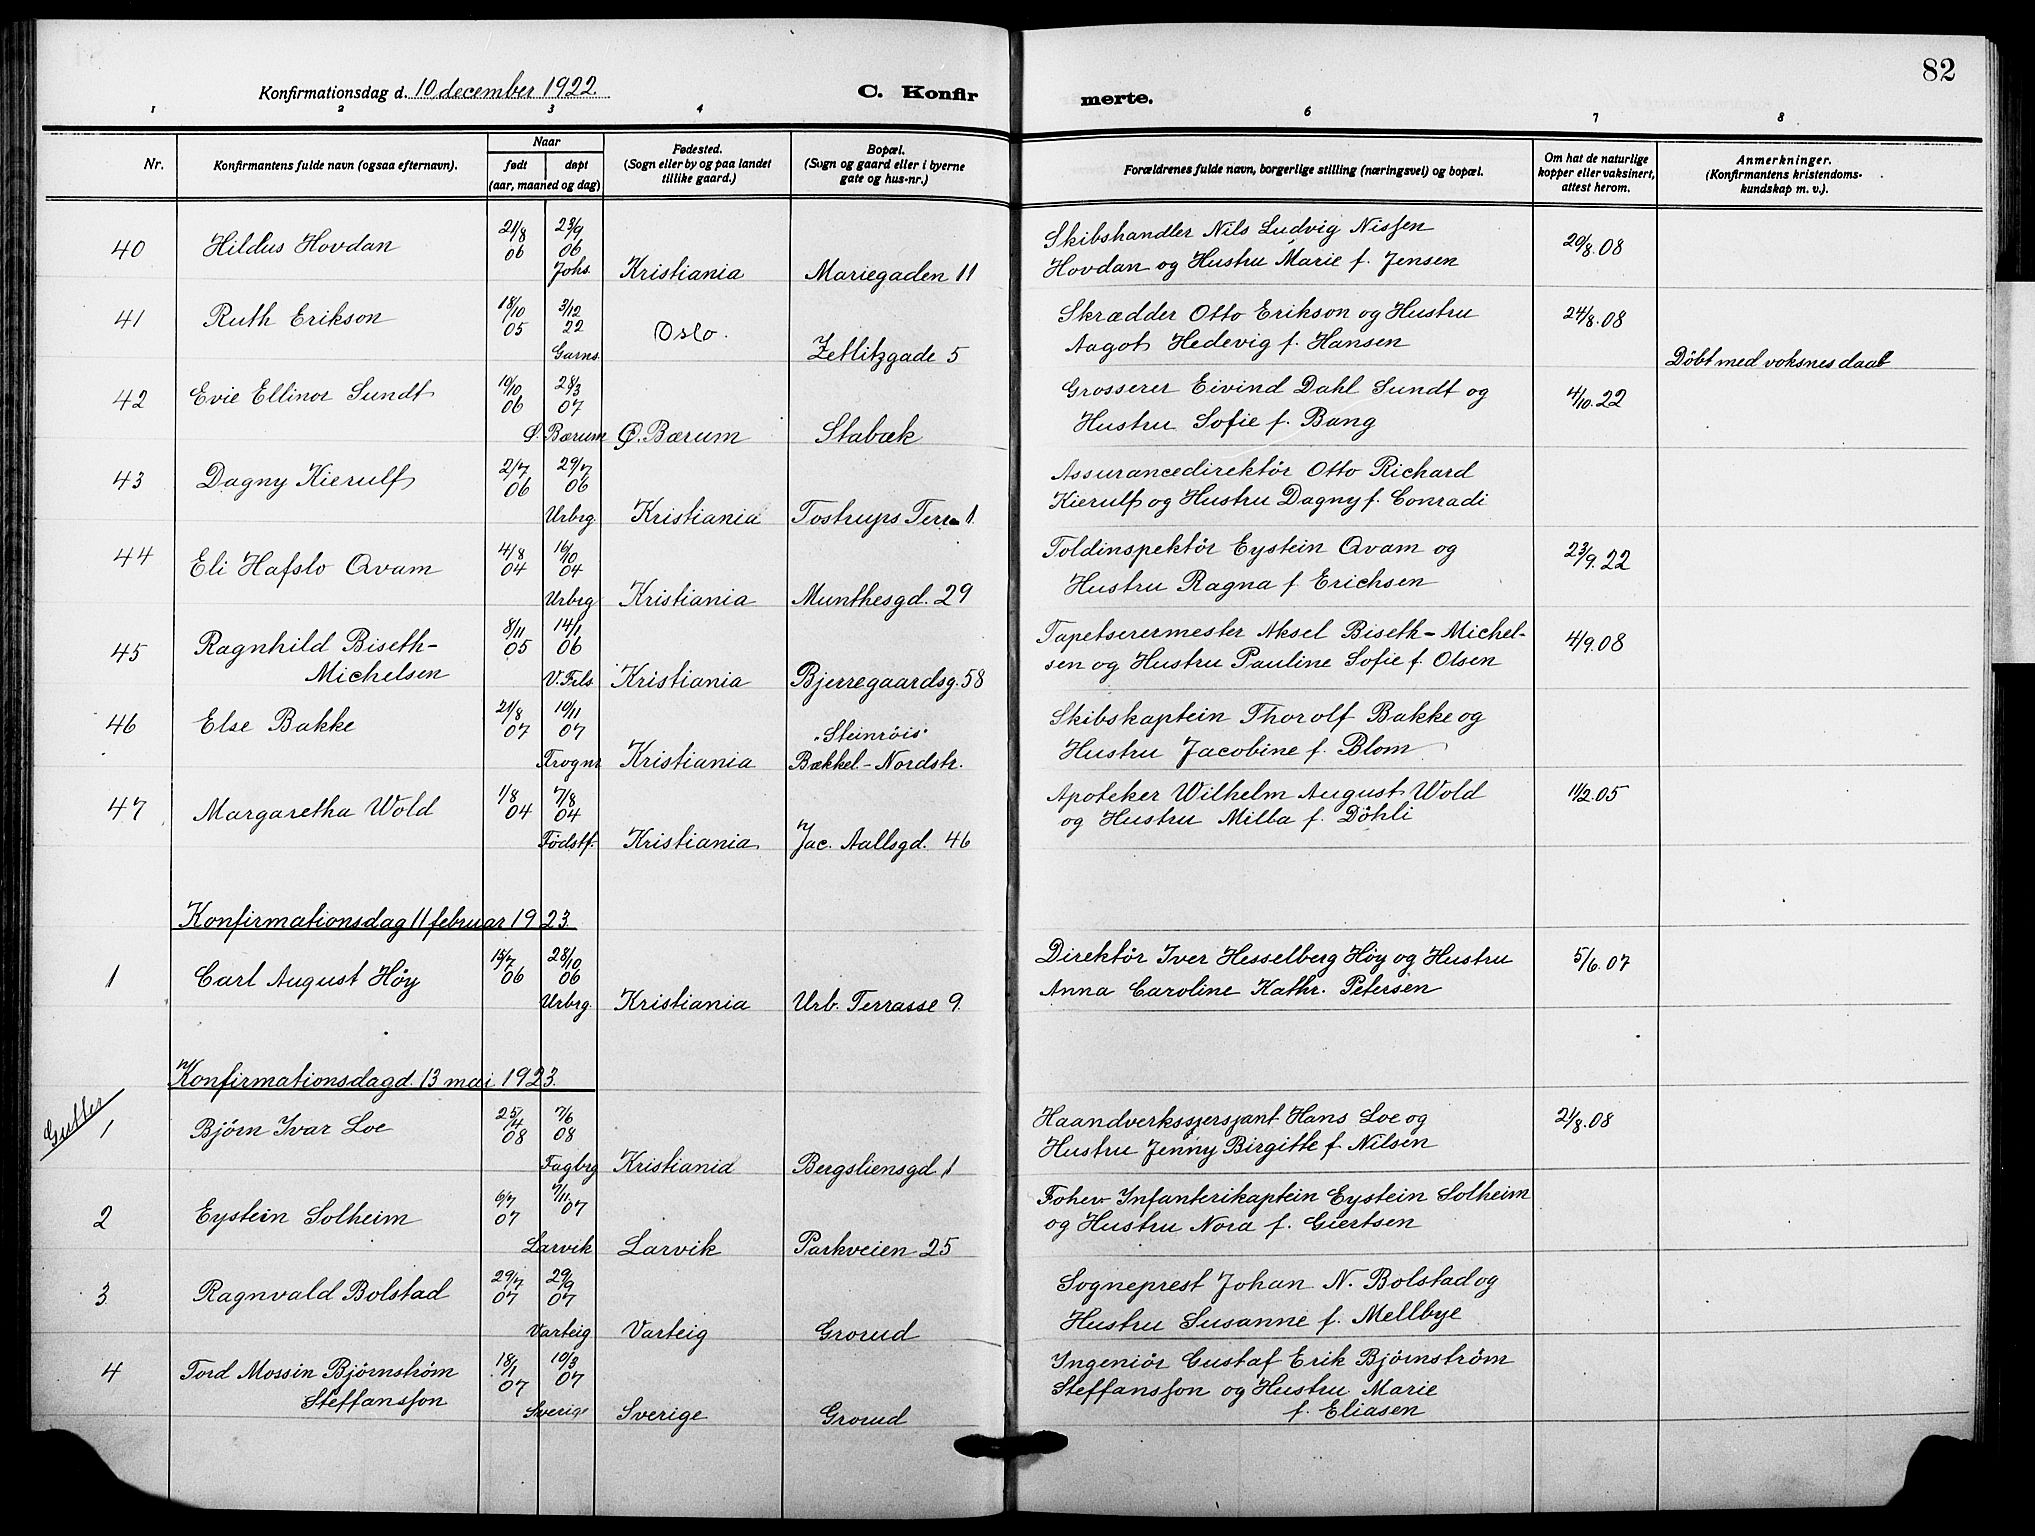 82
Konfirmationsdag d. 10 december 1922.
C. Konfir
merte.
1 2 3 4 6 7 8
Nr.
Konfirmantens fulde navn (ogsaa efternavn).
Naar
født døpt
(aar, maaned og dag)
Fødested.
(Sogn eller by og paa landet
tillike gaard.)
Bopæl.
(Sogn og gaard eller i byerne
gate og hus-nr.)
Forældrenes fulde navn, borgerlige stilling (næringsvei) og bopæl.
Om hat de naturlige
kopper eller vaksinert,
attest herom.
Anmerkninger.
(Konfirmantens kristendoms-
kundskap m. v.).
40 Hildus Hovdan 21/8 06 23/9 06 Johs. Kristiania Mariegaden 11
Skibshandler Nils Ludvig Nissen 20/8.08
Hovdan og Hustru Marie f. Jensen
41 Ruth Erikson 18/10 05 3/12 22 Garns. Oslo. Zetlitzgade 5
Skrædder Otto Erikson og Hustru 24/8.08
Aagot Hedevig f. Hansen
Döbt med voksnes daab
42 Evie Ellinor Sundt 19/10 06 28/3 07 Ø. Bærum Ø. Bærum Stabæk
Grosserer Eivind Dahl Sundt og 4/10.22
Hustru Sofie f. Bang
43 Dagny Kierulf 2/7 06 29/7 06 Urbrg. Kristiania Tostrups Terr. 1.
Assurancedirektör Otto Richard
Kierulf og Hustru Dagny f. Conradi
44 Eli Hafslo Qvam 4/8 04 16/10 04 Urbrg Kristiania Munthesgd. 29
Toldinspektör Eystein Qvam og 23/9.22
Hustru Ragna f. Erichsen
45 Ragnhild Biseth-
Michelsen 8/11 05 14/1 06 V. Frls. Kristiania Bjerregaardsg. 58
Tapetserermester Aksel Biseth-Michel- 4/9.08
sen og Hustru Pauline Sofie f. Olsen
46 Else Bakke 21/8 07 10/11 07 Frognr Kristiania "Steinröis"
Bækkel.-Nordstr.
Skibskaptein Thorolf Bakke og
Hustru Jacobine f. Blom
47 Margaretha Wold 1/8 04 7/8 04 Födstf. Kristiania Jac. Aallsgd. 46
Apoteker Wilhelm August Wold 11/2.05
og Hustru Milla f. Döhli
Konfirmationsdag 11 februar 1923.
1 Carl August Höy 15/7 06 28/10 06 Urbrg. Kristiania Urb. Terrasse 9.
Direktör Iver Hesselberg Höy og Hustru 5/6.07
Anna Caroline Kathr. Petersen
Konfirmationsdag d. 13 mai 1923.
Gutter
1 Björn Ivar Loe 25/4 08 7/6 08 Fagbrg Kristiania Bergsliensgd. 1
Haandverkssjersjant Hans Loe og 21/8.08
Hustru Jenny Birgitte f. Nilsen
2 Eystein Solheim 6/7 07 7/11 07 Larvik Larvik Parkveien 25
Fohev Infanterikaptein Eystein Solheim
og Hustru Nora f. Giertsen
3. Ragnvald Bolstad 29/7 07 29/9 07 Varteig Varteig Grorud
Sogneprest Johan N. Bolstad og
Hustru Susanne f. Mellbye
4 Tord Mossin Björnström
Steffansson 18/1 07 10/3 07 Sverige Sverige Grorud
Ingeniör Gustaf Erik Björnström
Steffansson og Hustru Marie
f. Eliasen